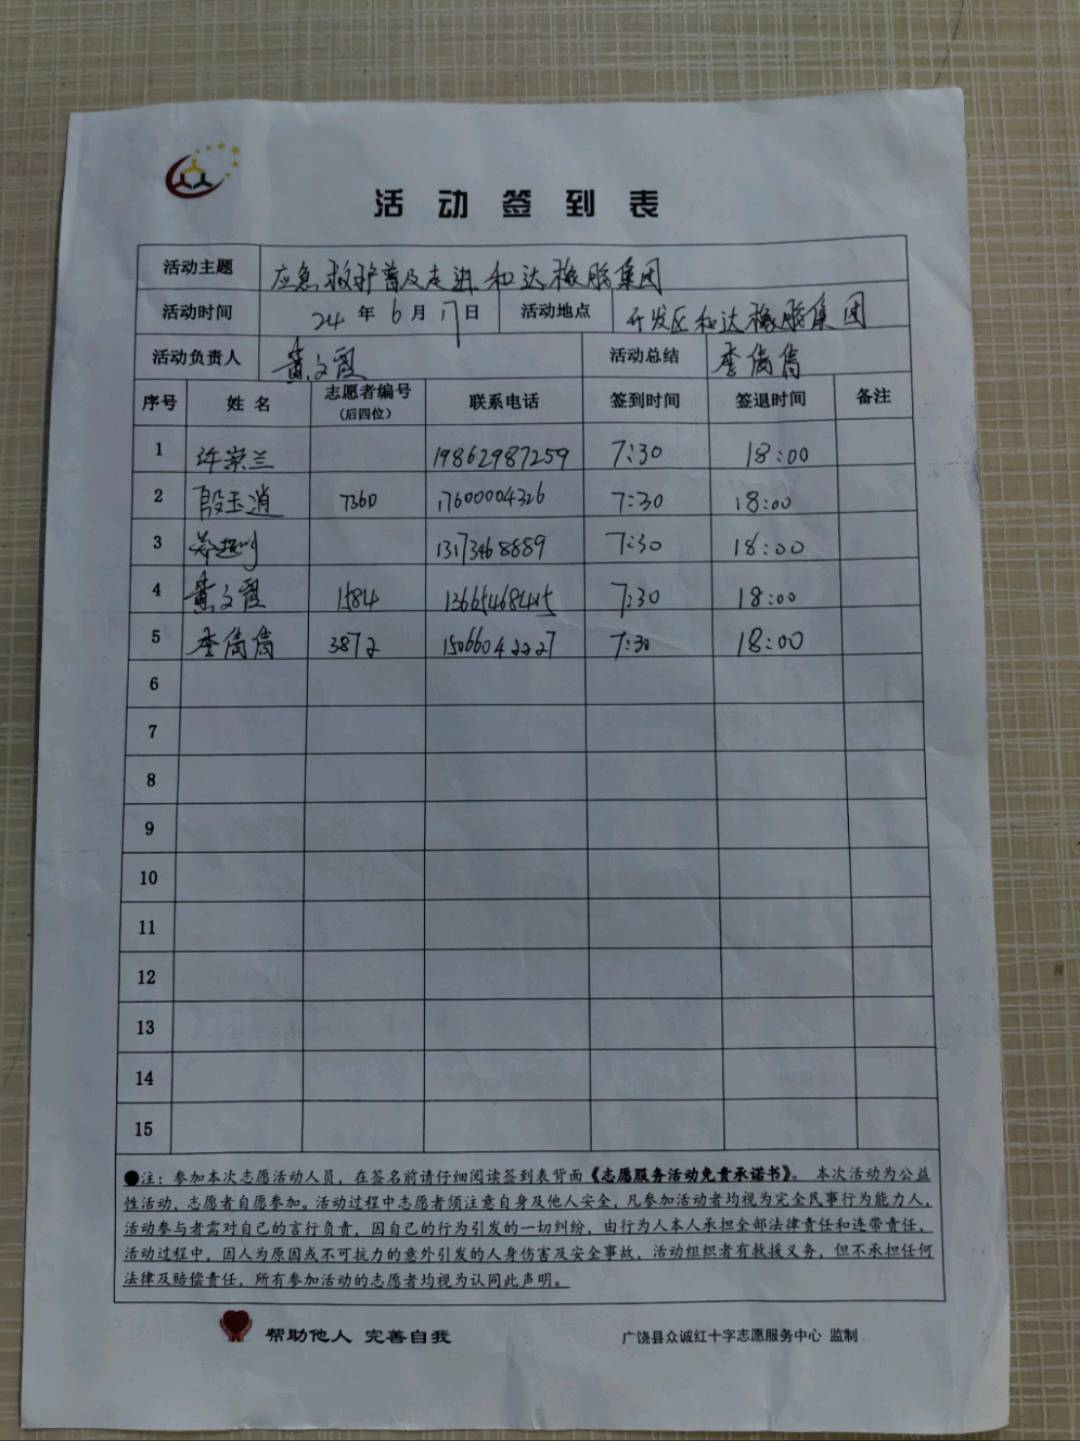 活动签到表
活动主题 应急救护普及走进和达橡胶集团
活动时间 24年6月17日 活动地点 开发区和达橡胶集团
活动负责人 黄文霞 活动总结 李倩倩
序号 姓名 志愿者编号(后四位) 联系电话 签到时间 签退时间 备注
1 许崇兰 19862987259 7:30 18:00
2 段玉逍 7360 17600004326 7:30 18:00
3 13173468889 7:30 18:00
4 黄文霞 1584 13665468415 7:30 18:00
5 李倩倩 3872 15066042227 7:30 18:00
6
7
8
9
10
11
12
13
14
15
●注：参加本次志愿活动人员，在签名前请仔细阅读签到表背面《志愿服务活动免责承诺书》。本次活动为公益
性活动，志愿者自愿参加。活动过程中志愿者须注意自身及他人安全，凡参加活动者均视为完全民事行为能力人，
活动参与者需对自己的言行负责，因自己的行为引发的一切纠纷，由行为人本人承担全部法律责任和连带责任，
活动过程中，因人为原因或不可抗力的意外引发的人身伤害及安全事故，活动组织者有救援义务，但不承担任何
法律及赔偿责任，所有参加活动的志愿者均视为认同此声明。
帮助他人 完善自我 广饶县众诚红十字志愿服务中心 监制